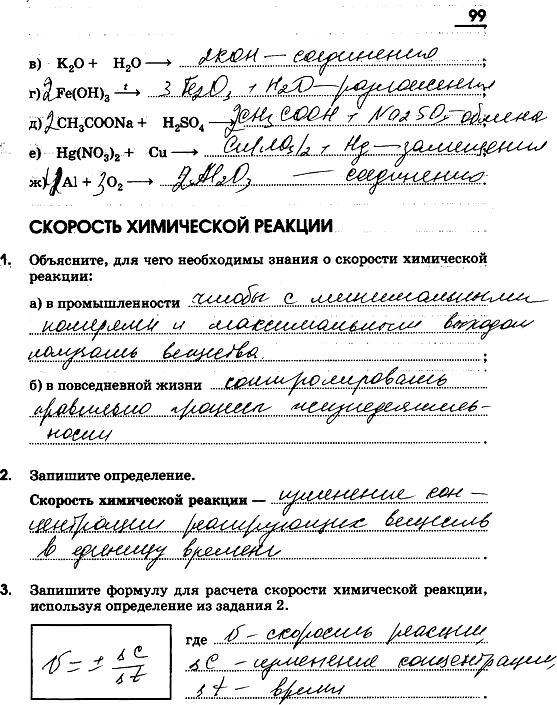 99
в) K₂O + H₂O ⟶ 2KOH — соединения;
г) 2Fe(OH)₃ ⟶ᵗ 3Fe₂O₃ + H₂O — разложения
д) 2CH₃COONa + H₂SO₄ ⟶ 2CH₃COOH + Na₂SO₄ — обмена
е) Hg(NO₃)₂ + Cu ⟶ Cu(NO₃)₂ + Hg — замещения;
ж) 4Al + 3O₂ ⟶ 2Al₂O₃ — соединения.
СКОРОСТЬ ХИМИЧЕСКОЙ РЕАКЦИИ
1. Объясните, для чего необходимы знания о скорости химической
реакции:
а) в промышленности чтобы с минимальными
потерями и максимальным выходом
получать вещества ;
б) в повседневной жизни контролировать
правильно процессы жизнедеятель-
ности .
2. Запишите определение.
Скорость химической реакции — изменение кон-
центрации реагирующих веществ
в единицу времени .
3. Запишите формулу для расчета скорости химической реакции,
используя определение из задания 2.
где υ – скорость реакции
υ = ± ΔC / Δt
ΔC – изменение концентрации,
Δt – время .